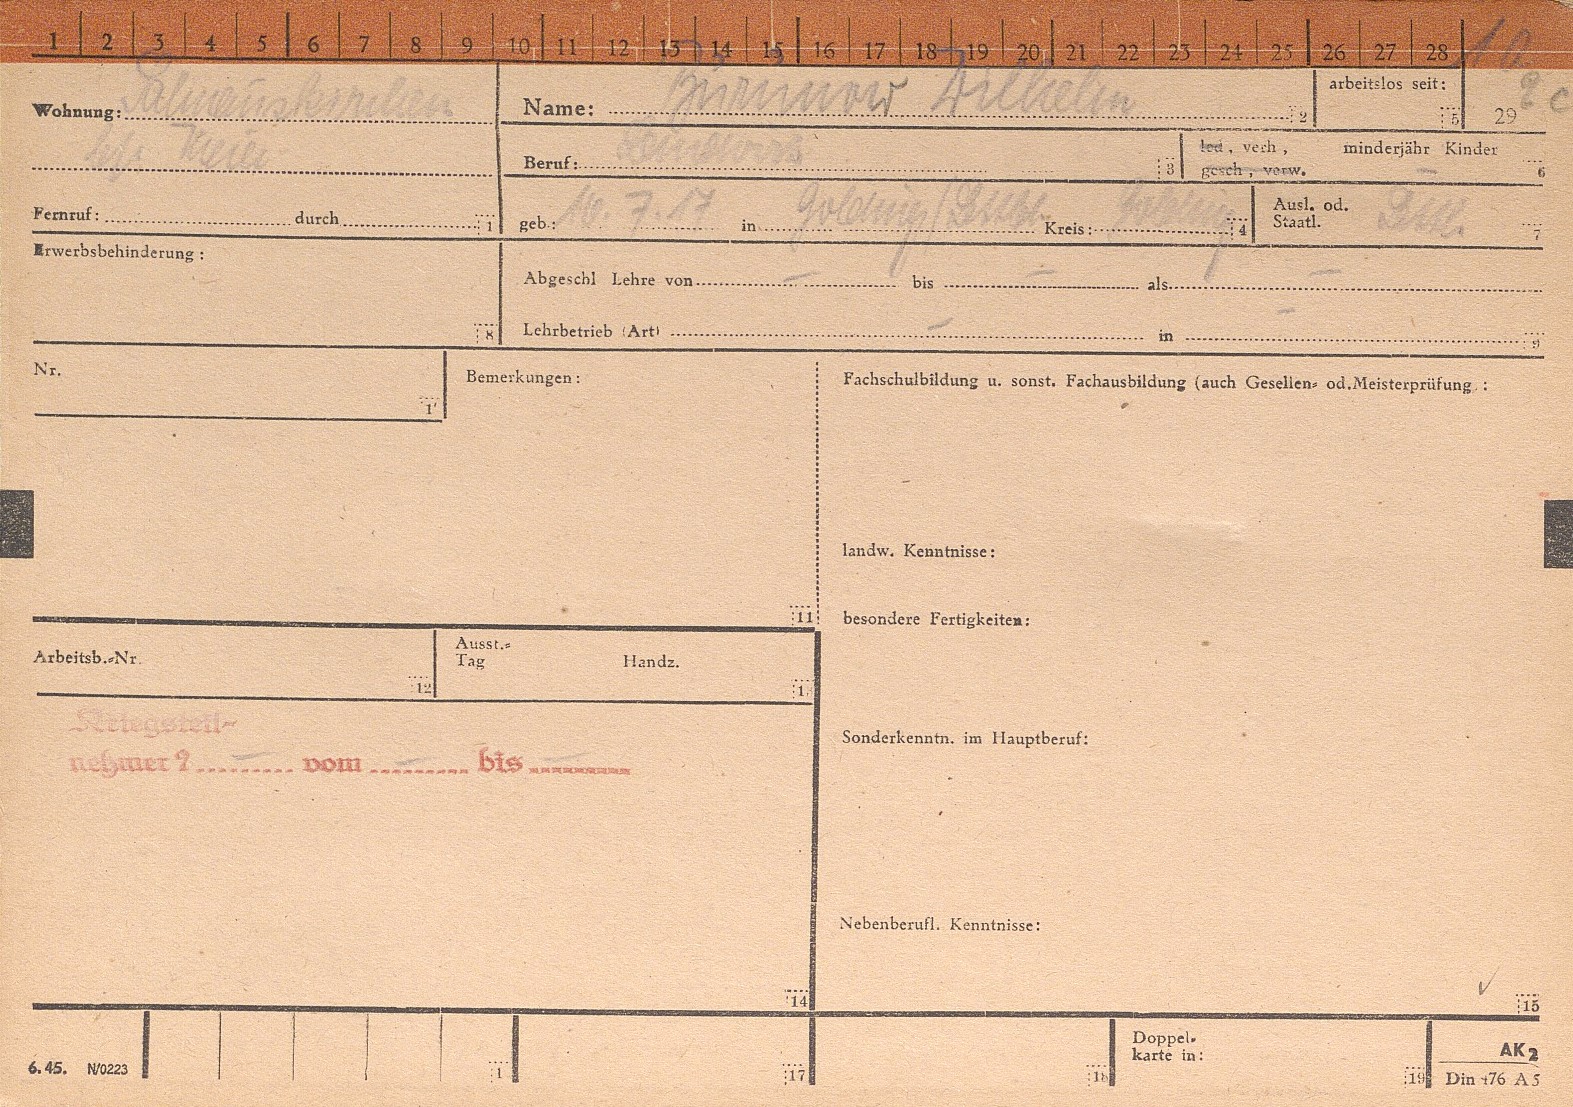 1 2 3 4 5 6 7 8 9 10 11 12 13 14 15 16 17 18 19 20 21 22 23 24 25 26 27 28
Wohnung:
Name: Wilhelm 2
arbeitslos seit: 5
29
Beruf: Landwirt 3
led, verh,
gesch, verw.
minderjähr Kinder – 6
Fernruf: durch 1
geb.: 10.7.17 in Kreis: 4
Ausl. od.
Staatl. 7
Erwerbsbehinderung: 8
Abgeschl Lehre von – bis – als –
Lehrbetrieb (Art) – in – 9
Nr.
Bemerkungen: 11
Fachschulbildung u. sonst. Fachausbildung (auch Gesellen= od.Meisterprüfung.:
landw. Kenntnisse:
besondere Fertigkeiten:
Arbeitsb.=Nr. 12
Ausst.=
Tag Handz.
Kriegsteil-
nehmer? – vom – bis –
Sonderkenntn. im Hauptberuf:
Nebenberufl. Kenntnisse:
14
15
6.45. N/0223
17
18
Doppel-
karte in: 19
AK2
Din 476 A5